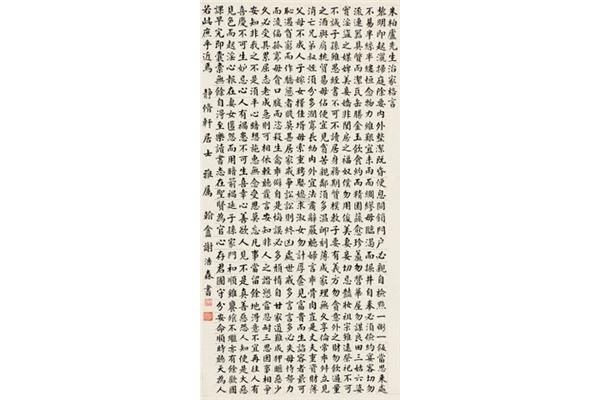 朱柏廬先生治家格言
黎明即起灑掃庭除要內外整潔既昏便息關鎖門戶必親自檢點一粥一飯當思來處
不易半絲半縷恒念物力維艱宜未雨而綢繆毋臨渴而掘井自奉必須儉約宴客切勿
流連器具質而潔瓦缶勝金玉飲食約而精園蔬愈珍羞勿營華屋勿謀良田三姑六婆
實淫盜之媒婢美妾嬌非閨房之福奴僕勿用俊美妻妾切忌豔妝祖宗雖遠祭祀不可
不誠子孫雖愚經書不可不讀居身務期質樸教子要有義方勿貪意外之財勿飲過量
之酒與肩挑貿易毋佔便宜見貧苦親鄰須多溫卹刻薄成家理無久享倫常乖舛立見
消亡兄弟叔姪須分多潤寡長幼內外宜法肅辭嚴聽婦言乖骨肉豈是丈夫重資財薄
父母不成人子嫁女擇佳壻毋索重聘娶媳求淑女勿計厚奩見富貴而生諂容者最可
恥遇貧窮而作驕態者賤莫甚居家戒爭訟訟則終凶處世戒多言言多必失毋恃勢力
而凌偪孤寡毋貪口腹而恣殺生禽乖僻自是悔誤必多頹惰自甘家道難成狎暱惡少
久必受其累屈志老成急則可相依輕聽發言安知非人之譖愬當忍耐三思因事相爭
安知非我之不是須平心暗想施惠無念受恩莫忘凡事當留餘地得意不宜再往人有
喜慶不可生妒忌心人有禍患不可生喜幸心善欲人見不是真善惡恐人知便是大惡
見色而起淫心報在妻女匿怨而用暗箭禍延子孫家門和順雖饔飧不繼亦有餘歡國
課早完即囊橐無餘自得至樂讀書志在聖賢為官心存君國守分安命順時聽天為人
若此庶乎近焉 靜脩軒居士雅屬 翰盦謝浩森書